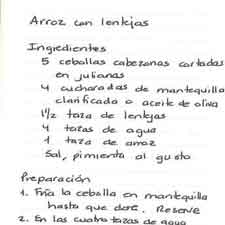 Arroz con lentejas
Ingredientes
5 ceballas cabezonas cortadas
en julianas
4 cucharadas de mantequilla
clarificada o aceite de oliva
1½ taza de lentejas
4 tazas de agua
1 taza de arroz
Sal, pimienta al gusto
Preparación
1. Fría la cebolla en mantequilla
hasta que dore. Reserve
2. En las cuatro tazas de agua